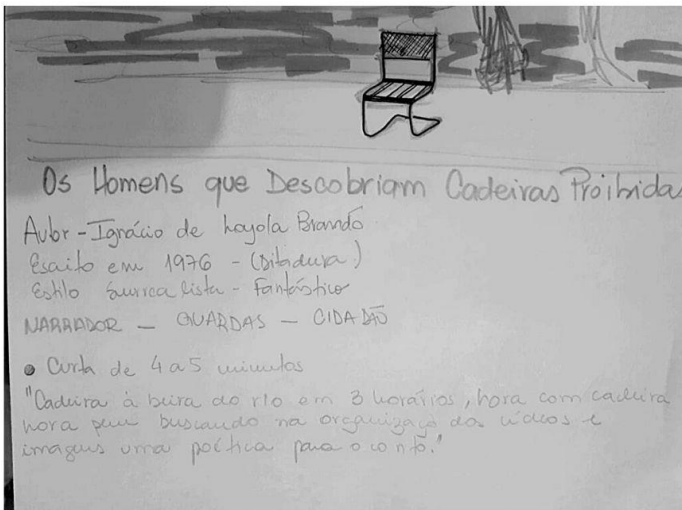 Os Homens que Descobriam Cadeiras Proibidas
Autor - Ignácio de Loyola Brandão
Escrito em 1976 - (Ditadura)
Estilo Surrealista - Fantástico
NARRADOR — GUARDAS — CIDADÃO
• Curta de 4 a 5 minutos
"Cadeira à beira do rio em 3 horários, hora com cadeira
hora sem buscando na organização dos vídeos e
imagens uma poética para o conto."